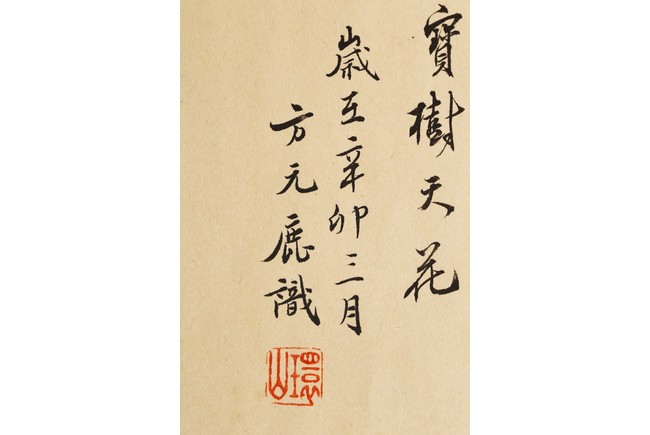 寶樹天花
歲在辛卯三月
方元鹿識
環山